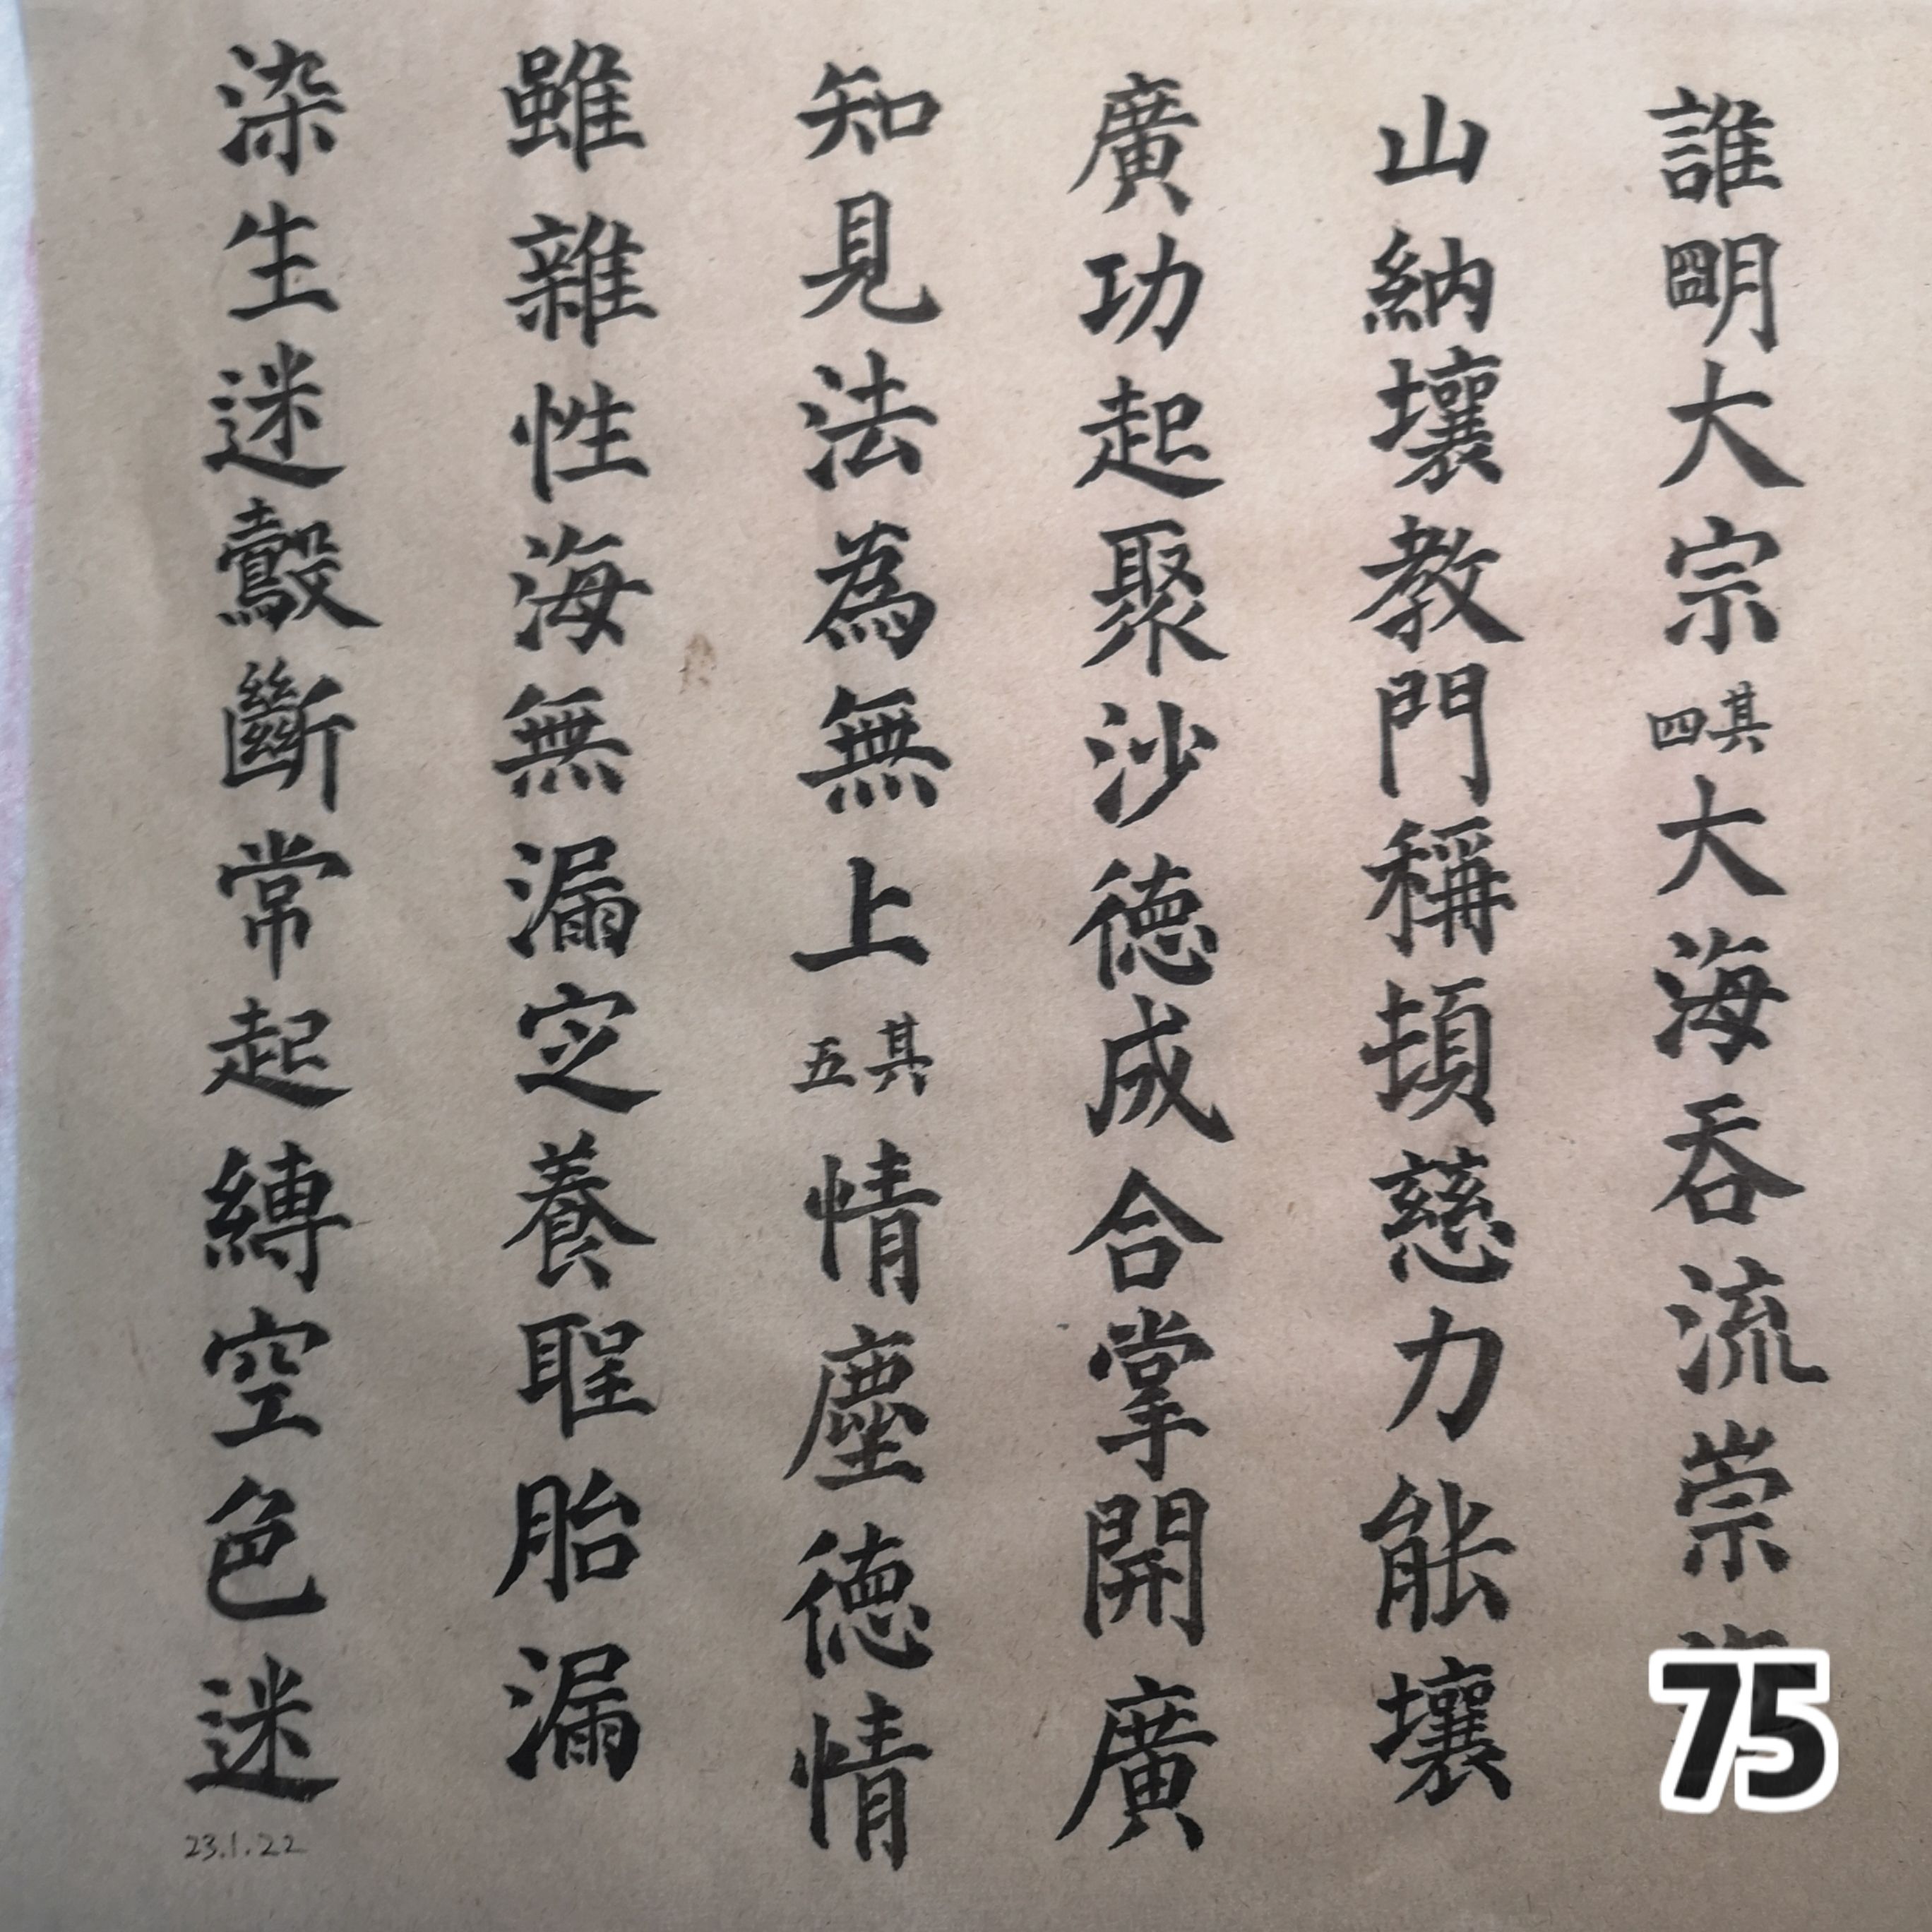 誰明大宗其四大海吞流崇
山納壤教門稱頓慈力能壤
廣功起聚沙德成合掌開廣
知見法為無上其五情塵德情
雖雜性海無漏定養聖胎漏
染生迷鷇斷常起縛空色迷
23.1.22
75